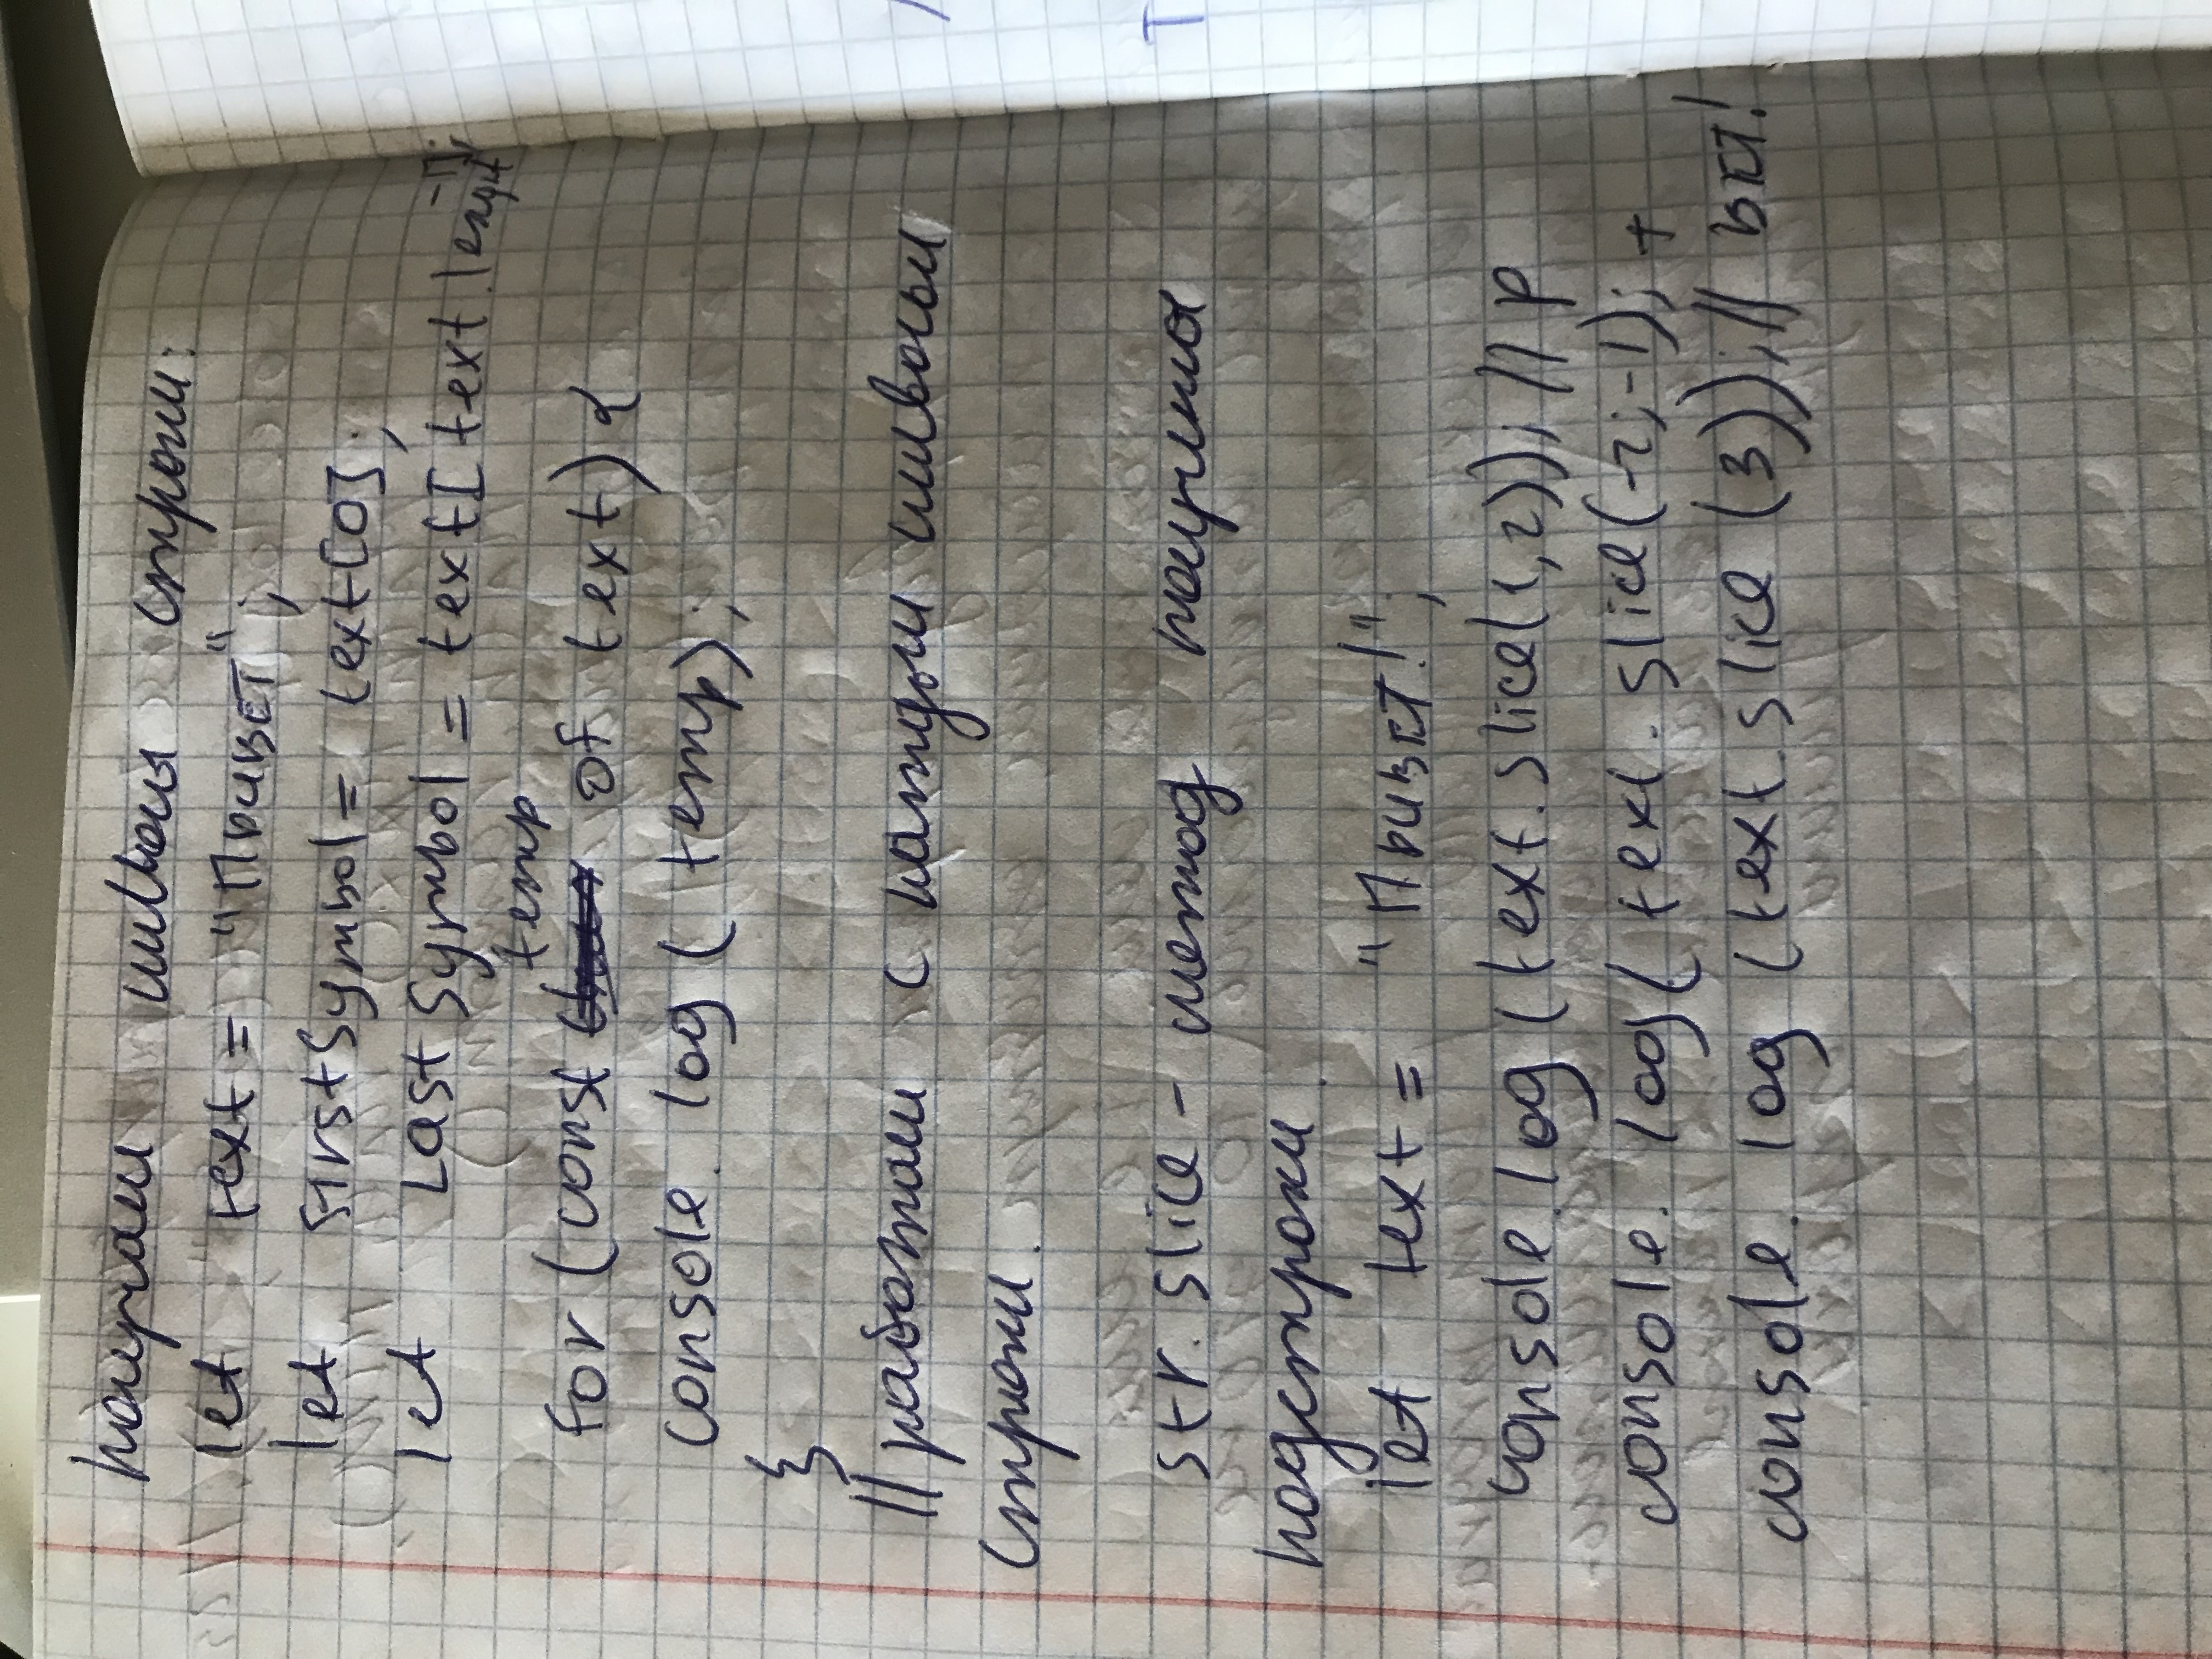 Получаем символы строки:
let text = "Привет";
let firstSymbol = text[0];
let LastSymbol = text[text.lenght-1];
for (const temp of text) {
console.log(temp);
}
//работаем с каждым символом
строки.
str.slice - метод получения
подстроки.
let text = "Привет!";
console.log(text.slice(1,2)); // р
console.log(text.slice(-2;-1); т
console.log(text.slice(3)); // вет!